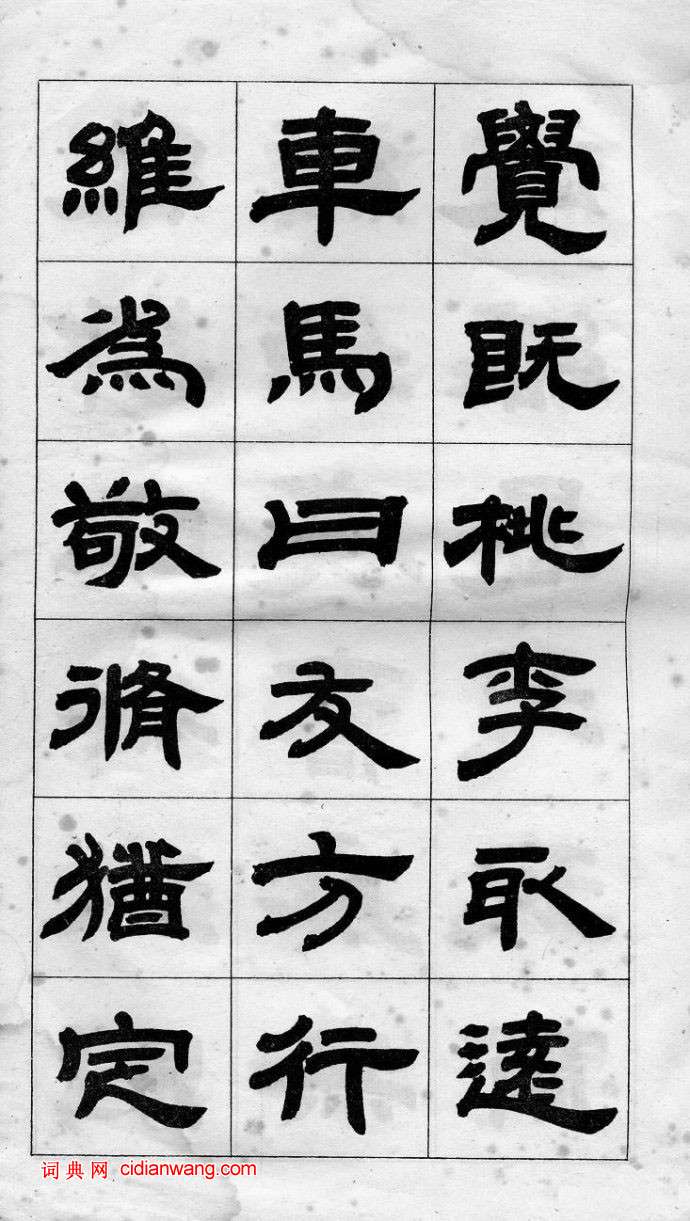 覺既桃李取達
車馬曰友方行
維為敬脩猶定
词典网 cidianwang.com